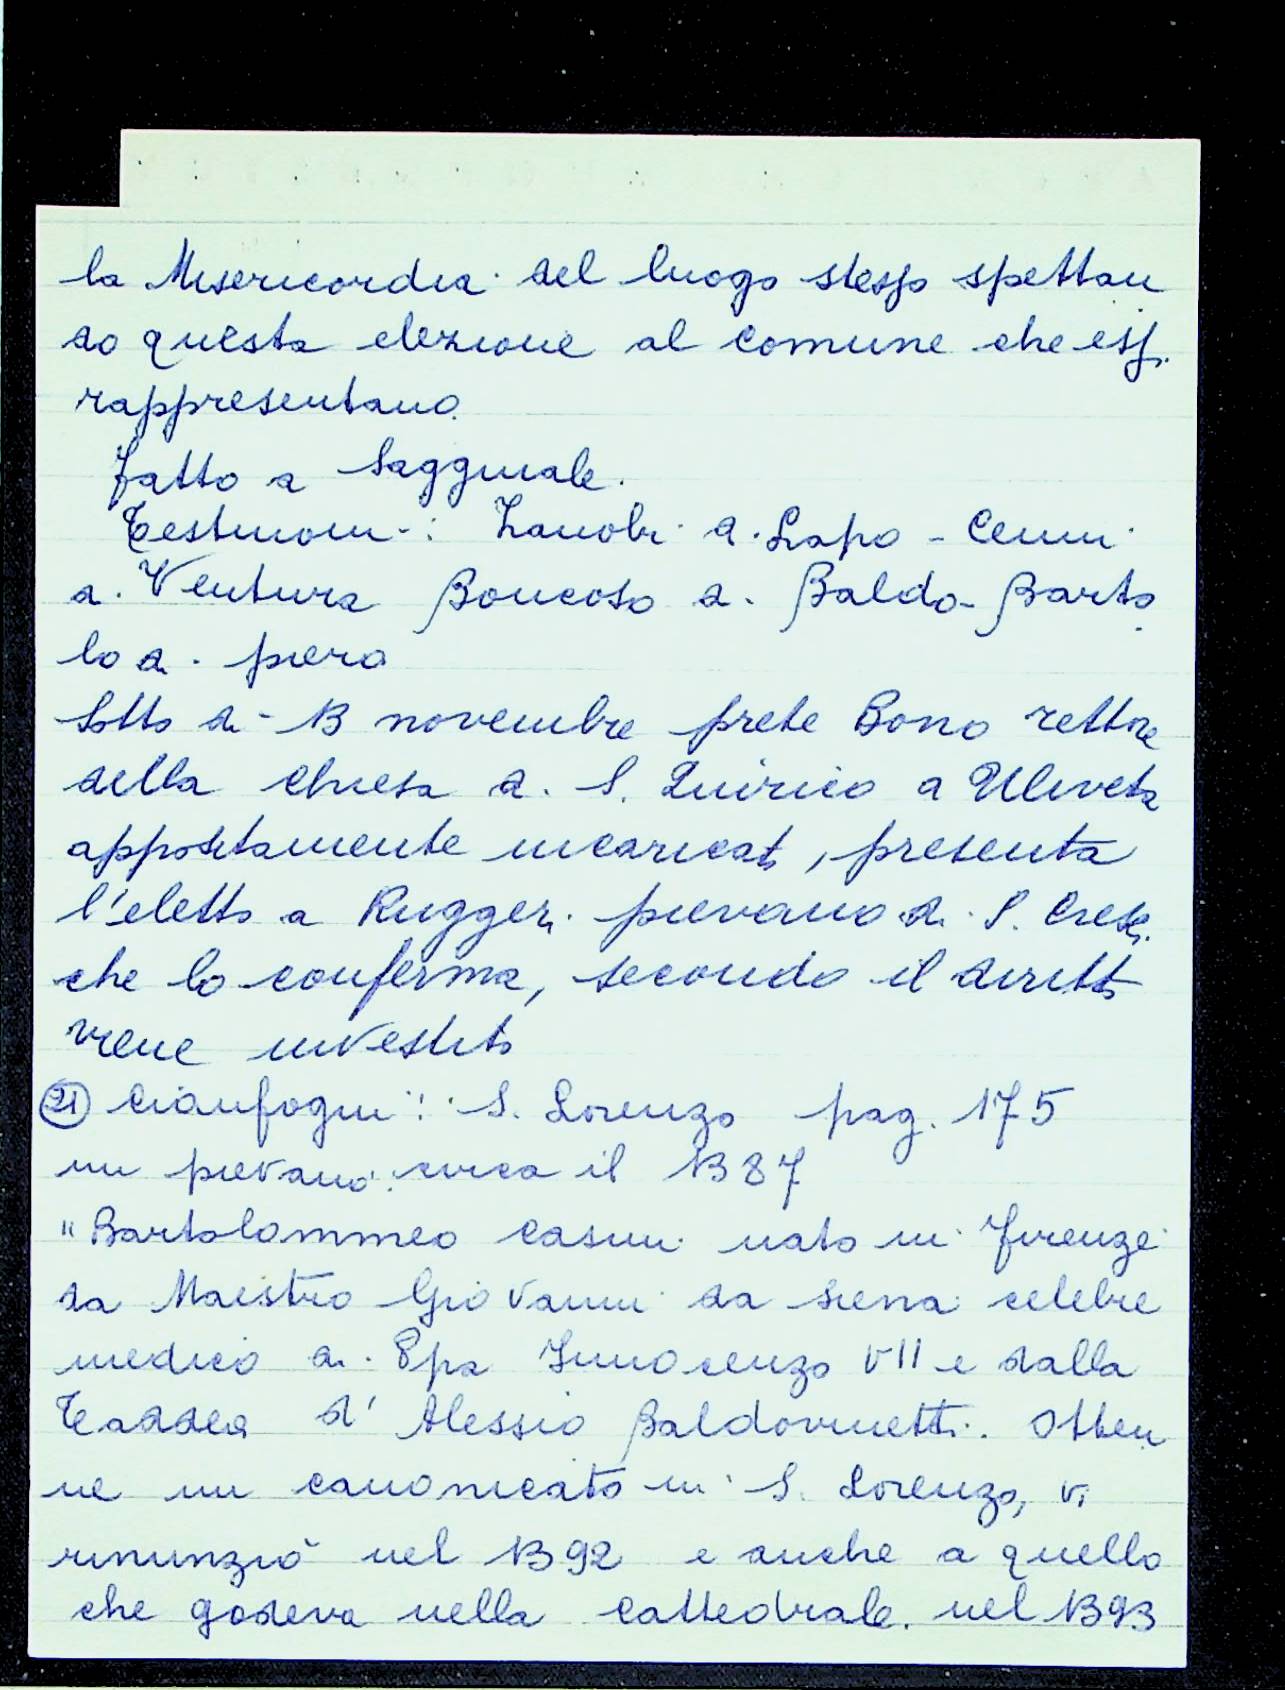 la Misericordia del luogo stesso spettan
do questa elezione al comune che essi
rappresentano.
Fatto a Sagginale.
Testimoni: Zanobi di Lapo - Cenni
di Ventura Boncoso di Baldo - Barto
lo di piero
Sotto di 13 novembre prete Bono rettore
della chiesa di S. Quirico a Uliveta
appositamente incaricato, presenta
l'eletto a Ruggeri pievano di S. Cresci
che lo conferma, secondo il diritto
viene investito
(21) Cianfogni: S. Lorenzo pag. 175
un pievano: circa il 1387
"Bartolommeo Casini nato in Firenze
da Maestro Giovanni da Siena celebre
medico di Ppa Innocenzo VII e dalla
Taddea d'Alessio Baldovinetti. Otten
ne un canonicato in S. Lorenzo, vi
rinunziò nel 1392 e anche a quello
che godeva nella Cattedrale. nel 1393